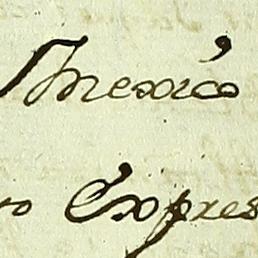 Mexico
Expres